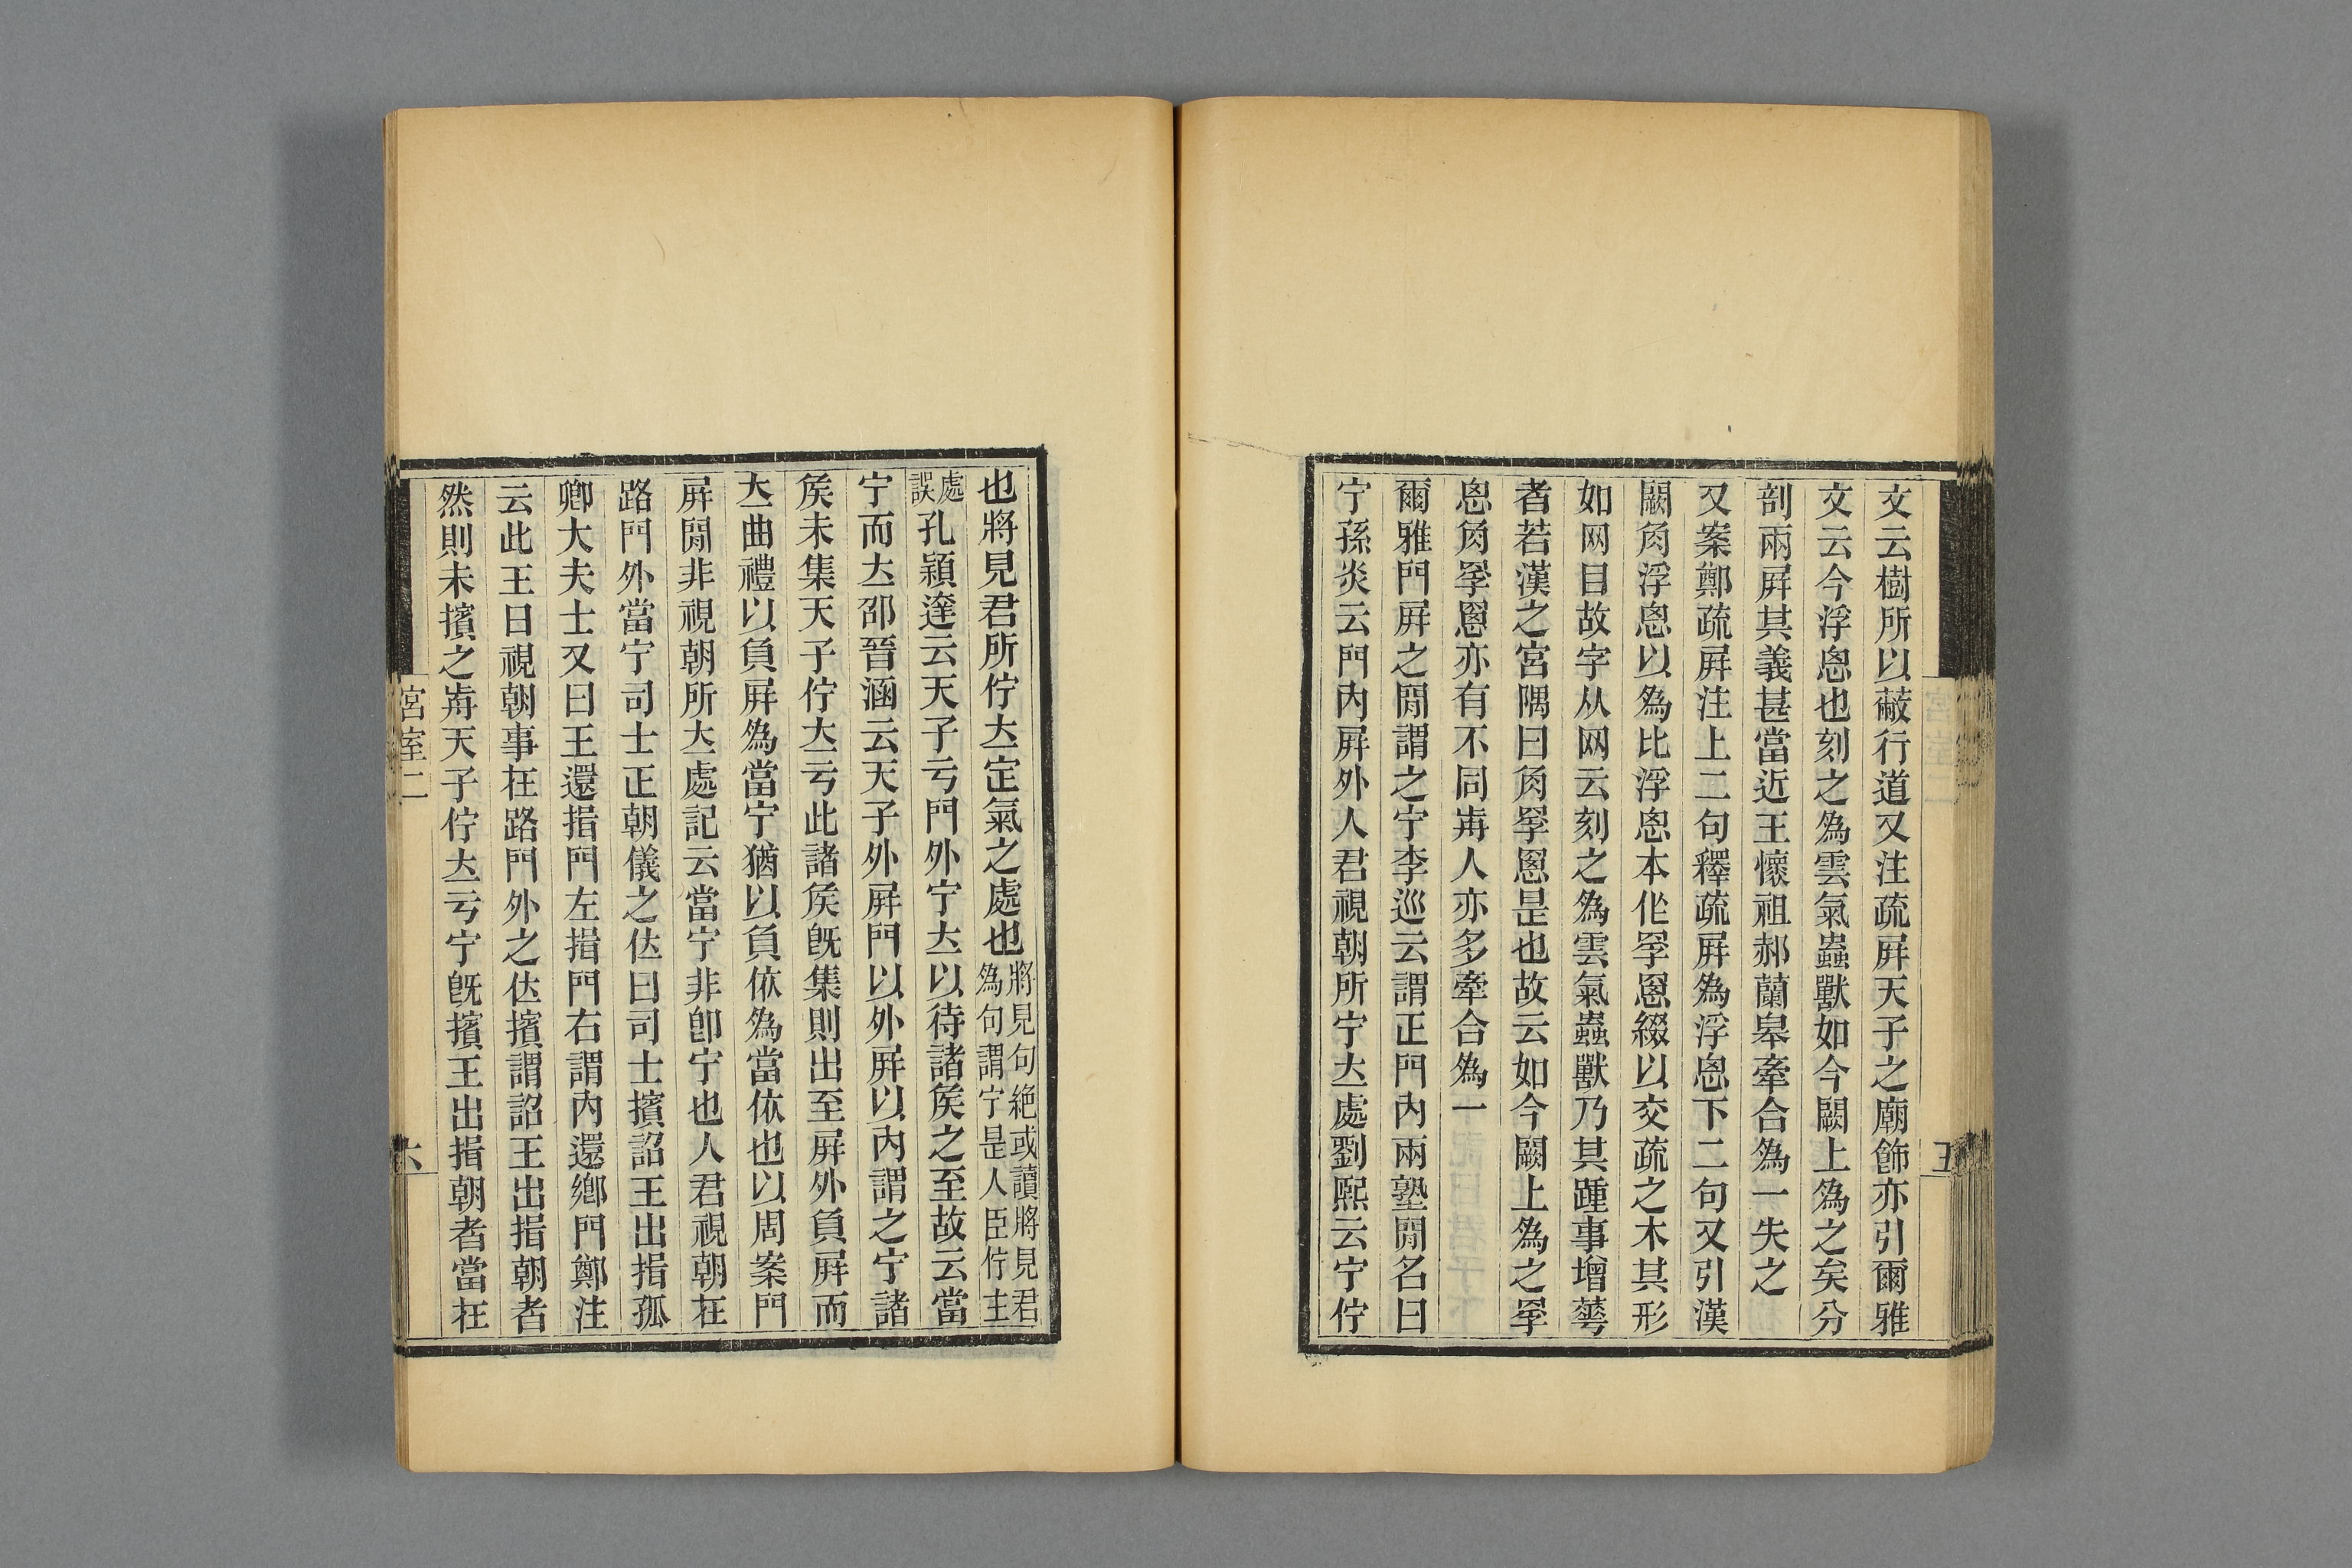 文云樹所以蔽行道又注疏屛天子之廟飾亦引爾雅
文云今浮思也刻之爲雲氣蟲獸如今闕上爲之矣分
剖兩屛其義甚當近王懷祖郝蘭皋牽合爲一失之
又案鄭疏屛注上二句釋疏屛爲浮思下二句又引漢
闕角浮思以爲比浮思本作罘罳綴以交疏之木其形
如网目故字从网云刻之爲雲氣蟲獸乃其踵事增蕐
者若漢之宮隅曰角罘罳是也故云如今闕上爲之罘
思角罘罳亦有不同歬人亦多牽合爲一
爾雅門屛之閒謂之宁李巡云謂正門內兩塾閒名曰
宁孫炎云門內屛外人君視朝所宁大處劉熙云宁佇
五
也將見君所佇大定氣之處也將見句絶或讀將見君爲句謂宁是人臣佇主
處誤孔穎達云天子亏門外宁大以待諸矦之至故云當
宁而大邵晉涵云天子外屛門以外屛以內謂之宁諸
矦未集天子佇大亏此諸矦旣集則出至屛外負屛而
大曲禮以負屛爲當宁猶以負依爲當依也以周案門
屛閒非視朝所大處記云當宁非卽宁也人君視朝在
路門外當宁司士正朝儀之位曰司士擯詔王出揖孤
卿大夫士又曰王還揖門左揖門右謂內還鄉門鄭注
云此王日視朝事在路門外之位擯謂詔王出揖朝者
然則未擯之歬天子佇大亏宁旣擯王出揖朝者當在
宮室二
六